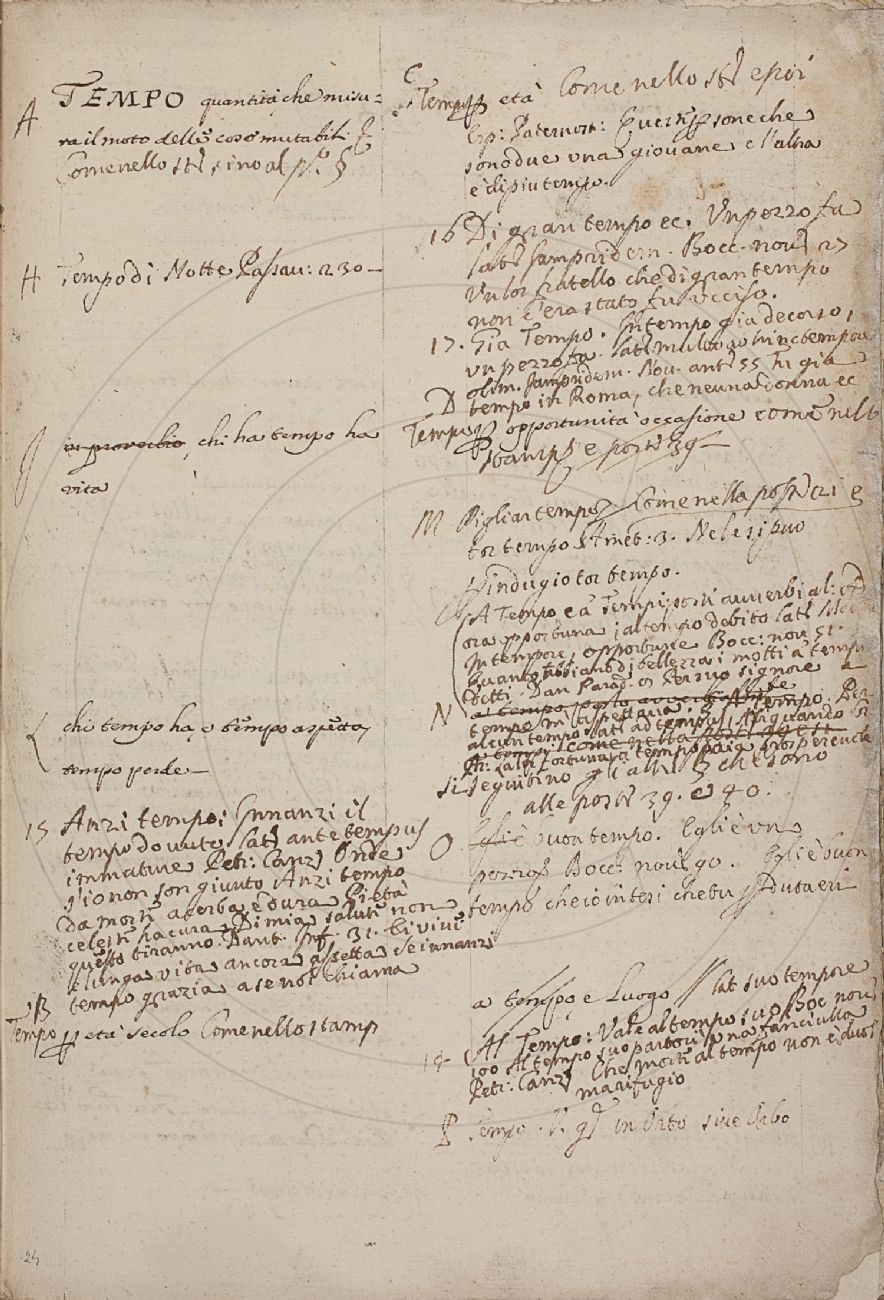 A TEMPO quantità che misu=
ra il moto delle cose mutabili
Come nello st. sino al p.º §
H Tempo di Notte Passau: 230 -
in proverbio, chi ha tempo ha
vita
L chi tempo ha, e tempo aspetta,
tempo perde -
15 Anzi tempo: Innanzi il
tempo dovuto lat. ante tempus
immature Petr: Canz. Onde
s'io non son giunto Anzi tempo
da morte acerba e dura Pietà
celeste ha cura Di mia salute non
questo tiranno. Dant. Inf. 31. Ei vive
e lunga vita ancora aspetta Se innanzi
tempo grazia a se nol chiama
B
Tempo p età secolo Come nello stamp
C
Tempo p età Come nello st. e poi
Esp: Paternost: Queste p sone che
sono due una giovane e l'altra
è di piu tempo.
16 Di gran tempo ec. Un pezzo fa
lat. Jampridem. Bocc. nov. 27
Un lor fratello che di gran tempo
non c'era stato fu ucciso.
17. Gia Tempo. In tempo gia decorso,
un pezzo fa. lat. multo ab hinc tempore
olim. Jampridem. Nov. ant. 55 Fu gia
tempo in Roma, che neuna donna ec
D
Tempo p opportunità occasione come nello
stamp e porte 39 -
M Pigliar tempo Come nella post. e
tor tempo Amet: 3. Ne le si puo
p indugio tor tempo.
A Tempo e a Tempi posti avverbial:
ora opportuna, al tempo debito lat.
In tempore, opportune Bocc: nov. 51.
Quanto abbiano di bellezza i motti a tempo
detti. Dan Parad. Per suo signore a
N a tempo posto avverbialmente
tempo m'aspettava. A tempo. Per
alcun tempo lat. ad tempus
a tempo come nella
fortuna a tempo
si seguitino gl'altri § che sono
alle porte 39. e 40.
O Egli è buon tempo. Egli è un
pezzo Bocc: nov. 90. Egli è buon
tempo che io interi che tu p duta eri
a tempo e Luogo // lat suo tempore
14 Al Tempo: Vale al tempo suo Boc nov.
100 Al tempo suo partorì una fanciulla
Petr: Canz. Che morte al tempo non è duol
ma rifugio
P Tempo. V. in Vito sive Sabo
24